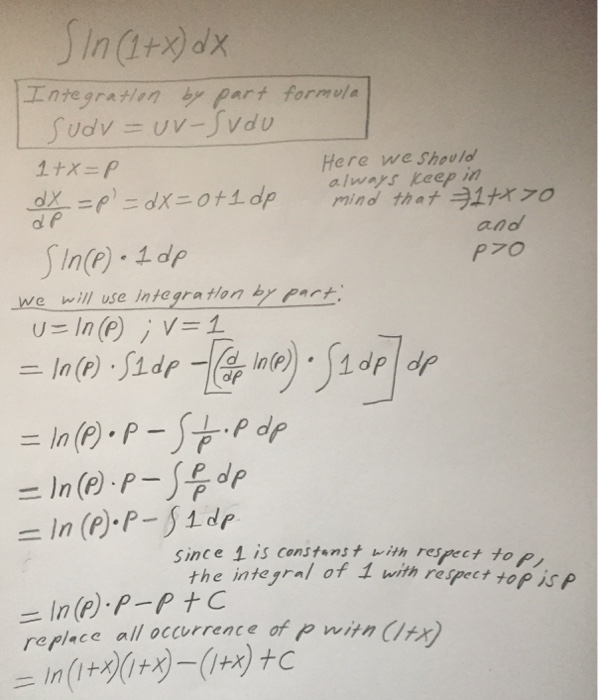 ∫ln(1+x)dx
Integration by part formula
∫udv = uv-∫vdu
1+x=p
dx/dp = p' = dx = 0+1 dp
Here we should
always keep in
mind that ⇒1+x>0
and
p>0
∫ln(p)·1dp
we will use integration by part:
u=ln(p) ; v=1
= ln(p)·∫1dp -[(d/dp ln(p))·∫1dp]dp
= ln(p)·p - ∫1/p·p dp
= ln(p)·p - ∫p/p dp
= ln(p)·p - ∫1dp
since 1 is constanst with respect to p,
the integral of 1 with respect to p is p
= ln(p)·p-p+C
replace all occurrence of p with (1+x)
= ln(1+x)(1+x)-(1+x)+C